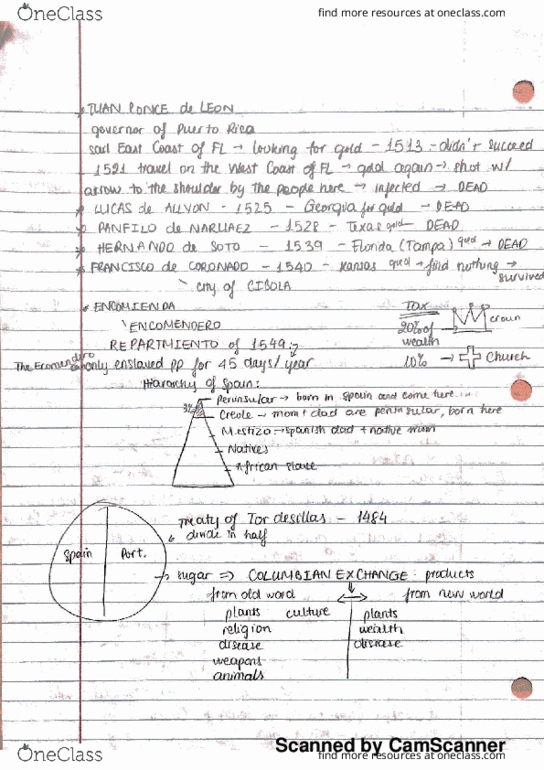 OneClass
find more resources at oneclass.com
JUAN PONCE de LEON
governor of Puerto Rica
sail East Coast of FL → looking for gold - 1513 - didn't succeed
1521 travel on the West Coast of FL → gold again → shot w/
arrow to the shoulder by the people here → infected → DEAD
LUCAS de ALLYON - 1525 - Georgia for gold → DEAD
PANFILO de NARUAEZ - 1528 - Texas gold - DEAD
HERNANDO de SOTO - 1539 - Florida (Tampa) gold → DEAD
FRANCISCO de CORONADO - 1540 - Kansas gold → find nothing → survived
city of CIBOLA
ENCOMIENDA
ENCOMENDERO
Tax
20% of wealth → crown
10% → Church
REPARTMIENTO of 1549:
The Ecomendero only enslaved pp for 45 days/year
Hierarchy of Spain:
3%
Peninsular → born in Spain and come here...
Creole → mom + dad are peninsular, born here
Mestizo → spanish dad + native mom
Natives
African slave
Treaty of Tordesillas - 1484
divide in half
Spain Port.
sugar ⇒ COLUMBIAN EXCHANGE: products
from old word ↔ from new world
plants culture plants
religion wealth
disease disease
weapons
animals
Scanned by CamScanner
OneClass
find more resources at oneclass.com